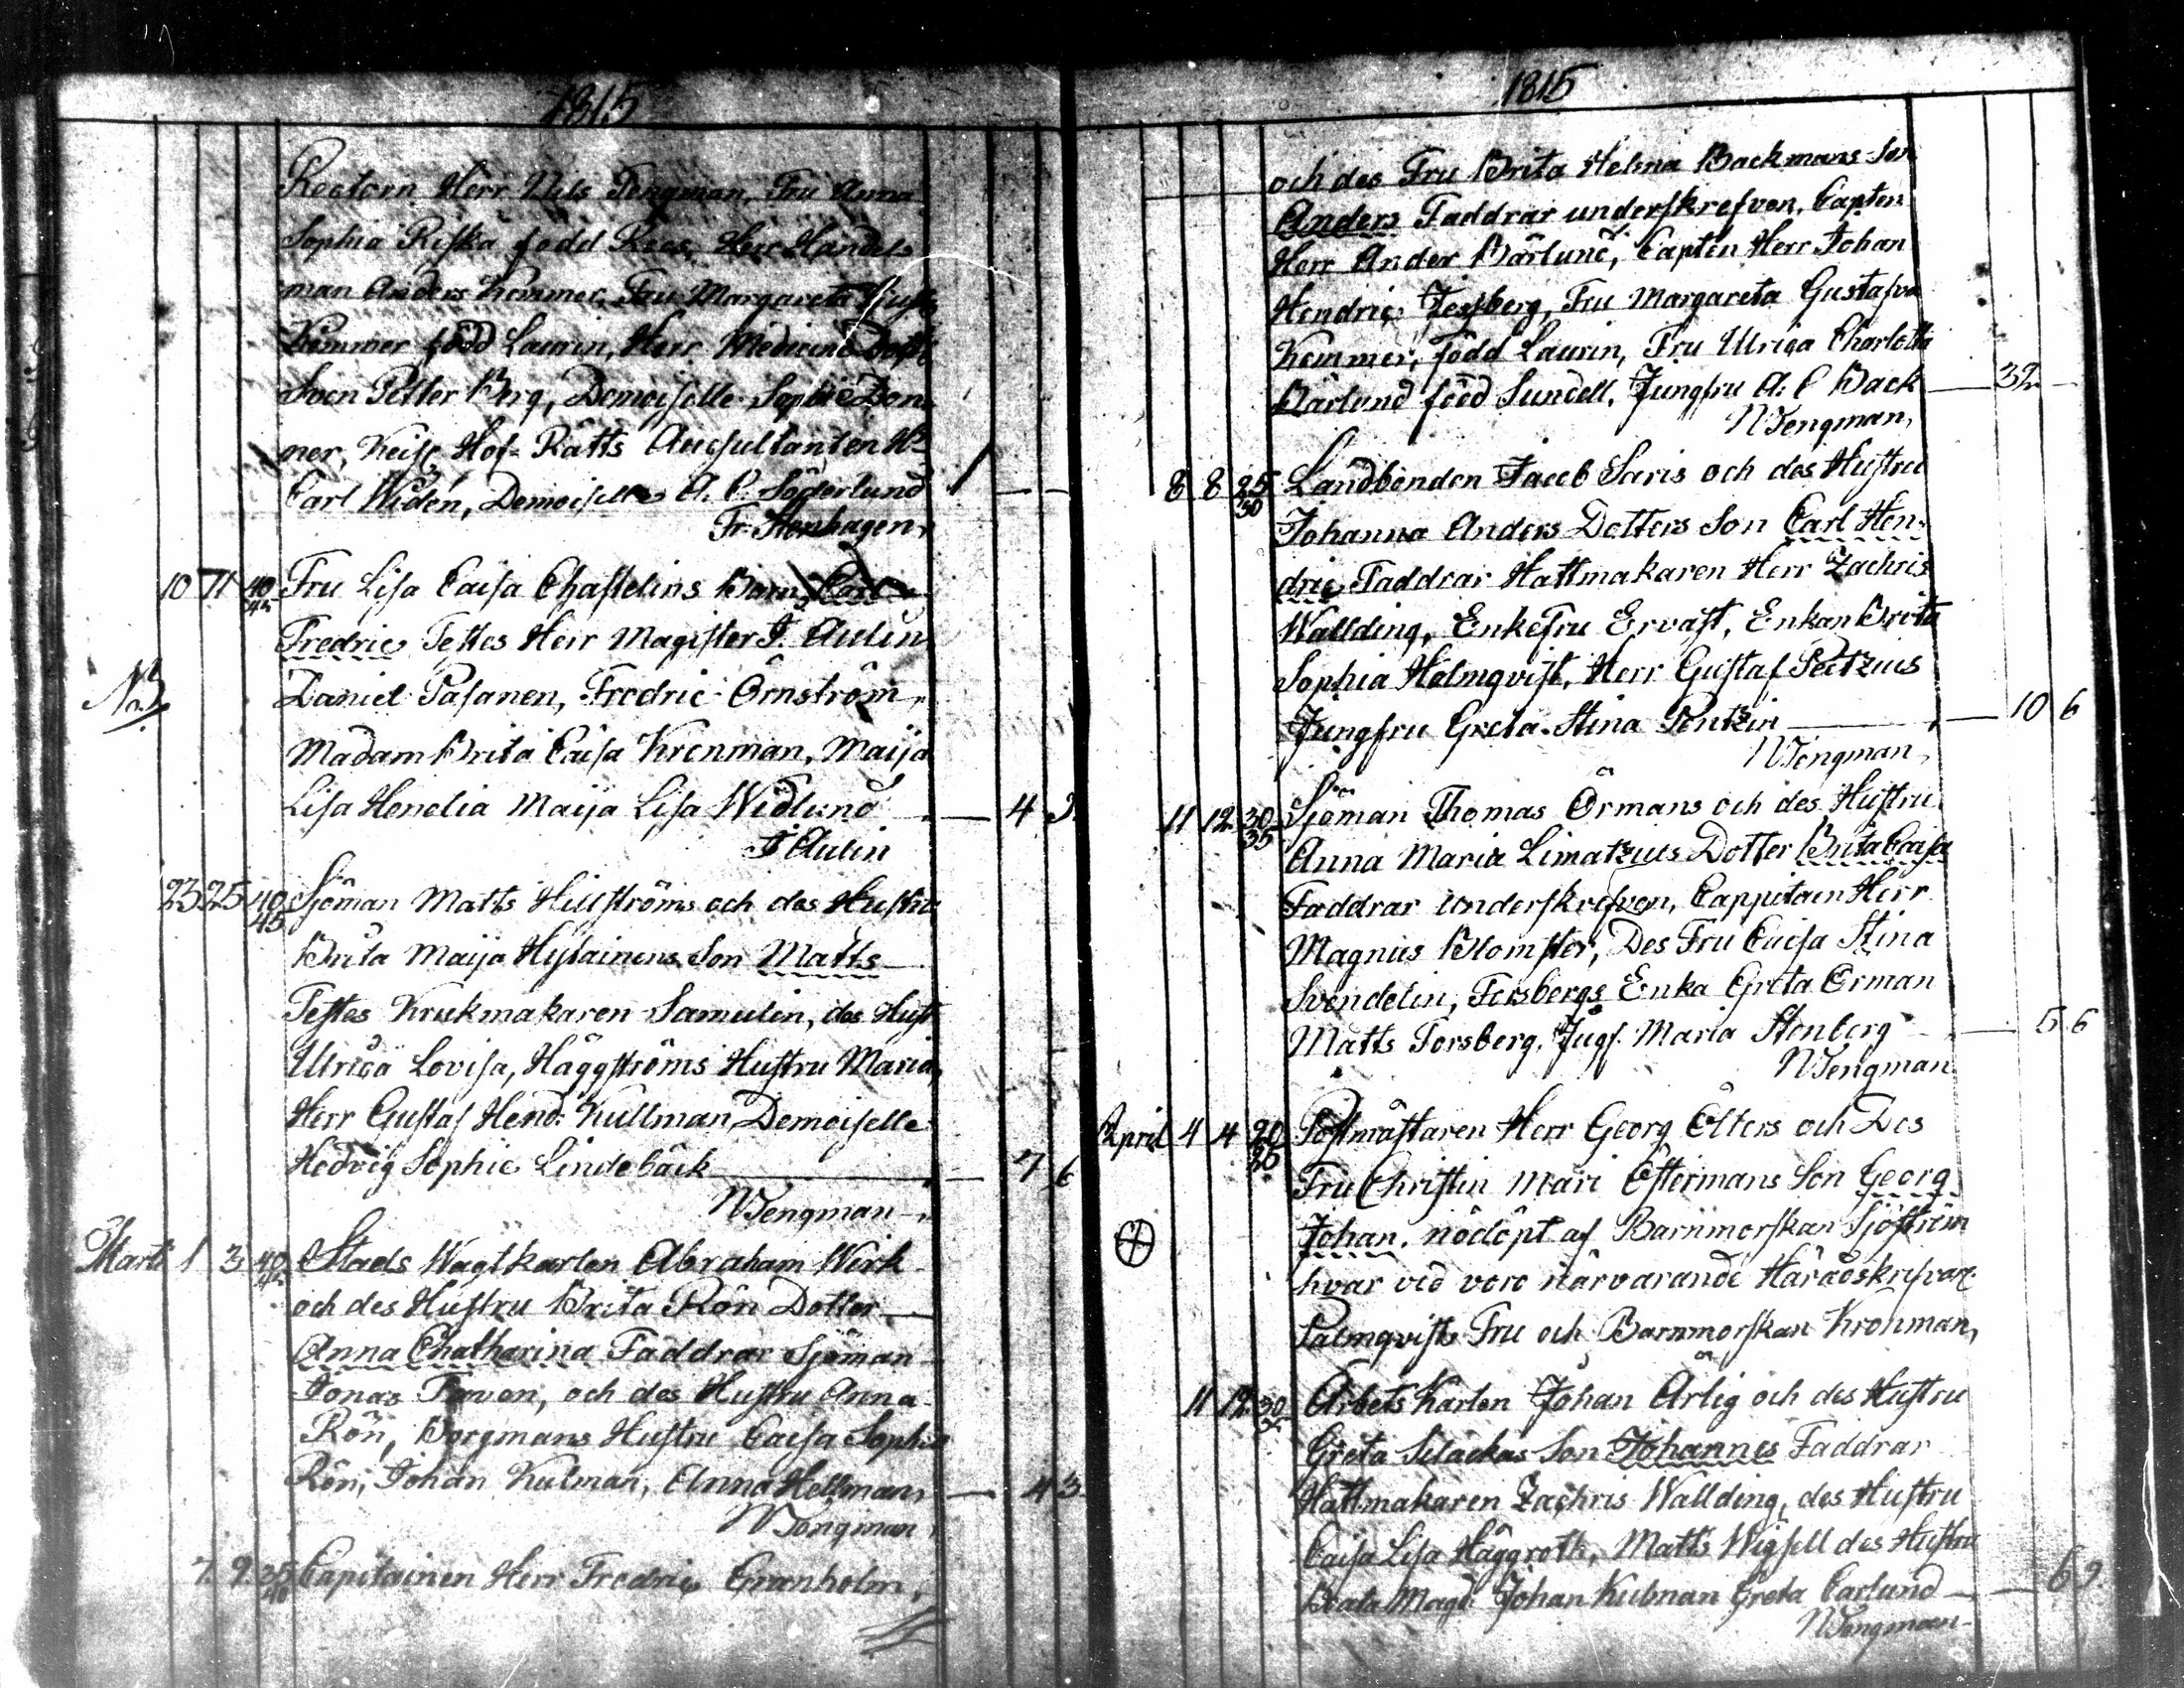 1815
Rectorn Herr Nils Tengman, Fru Anna
Sophia Riska född Roos, Herr Handels
man Anders Kemmer, Fru Margareta
Kemmer född Laurin, Herr Medicine
Sven Petter Berg, Demoiselle Sophie Don
ner, Keis. Hof-Rätts Auscultanten Hr
Carl Widen, Demoiselle A. C. Söderlund
Fr. Stenhagen,
10 11 40 Fru Lisa Caisa Chastelins Barn, Carl
Fredric Testes Herr Magister J. Aulin
Daniel Pasanen, Fredric Örnström,
Madam Brita Caisa Kronman, Maija
Lisa Henelia Maija Lisa Widlund — 4
J Aulin
23 25 40 45 Sjöman Matts Hillströms och des Hustru
Brita Maija Hysainens Son Matts
Testes Krukmakaren Samulin, des Hust
Ulrica Lovisa, Häggströms Hustru Maria,
Herr Gustaf Hend: Kullman Demoiselle
Hedvig Sophie Lindebäck — 7 6
N Tengman
Marti 1 3 40 Stads Wagtkarlen Abraham Wirk
och des Hustru Brita Rön Dotter
Anna Chatharina Faddrar Sjöman
Jonas, och des Hustru Anna
Rön, Borgmans Hustru Caisa Sophia
Rön, Johan Kulman, Anna Hellman — 4 3
N Tengman
7. 9. 35 40 Capitainen Herr Fredric Granholm,
1815
och des Fru Brita Helena Backmans Son
Anders Faddrar underskrefven, Capten
Herr Ander Bärlund, Captén Herr Johan
Hendric Fessberg, Fru Margareta Gustafva
Kemmer, född Laurin, Fru Ulrica Charlotta
Bärlund född Sundell, Jungfru A: C Back — 32
N Tengman,
8 8 25 30 Landbonden Jacob Saris och des Hustru
Johanna Anders Dotters Son Carl Hen-
dric Faddrar Hattmakaren Herr Zachris
Wallding, Enkefru Ervast, Enkan Brita
Sophia Holmqvist, Herr Gustaf
Jungfru Greta Stina — 10 6
N Tengman,
11 12 30 35 Sjöman Thomas Örmans och des Hustru
Anna Maria Limatzius Dotter Brita Caisa
Faddrar underskrefven, Cappitain Herr
Magnus Blomster, Des Fru Caisa Stina
Svendelin, Forsbergs Enka Greta Orman
Matts Forsberg, Jugf. Maria Stenberg — 5 6
N Tengman
April 4 4 20 Postmästaren Herr Georg Ölters och Des
Fru Christin Mari Östermans Son Georg
Johan. nöddöpt af Barnmorskan Sjöström
hvar vid voro närvarande Häradskrifvar
Palmqvists Fru och Barnmorskan Kronman,
11 12 30 Arbets Karlen Johan Ärlig och des Hustru
Greta Silackas Son Johannes Faddrar
Hattmakaren Zachris Wallding, des Hustru
Caisa Lisa Häggroth, Matts Wigsell des Hustru
Beata Magd: Johan Kulman Greta Carlund — 6 9.
N Tengman